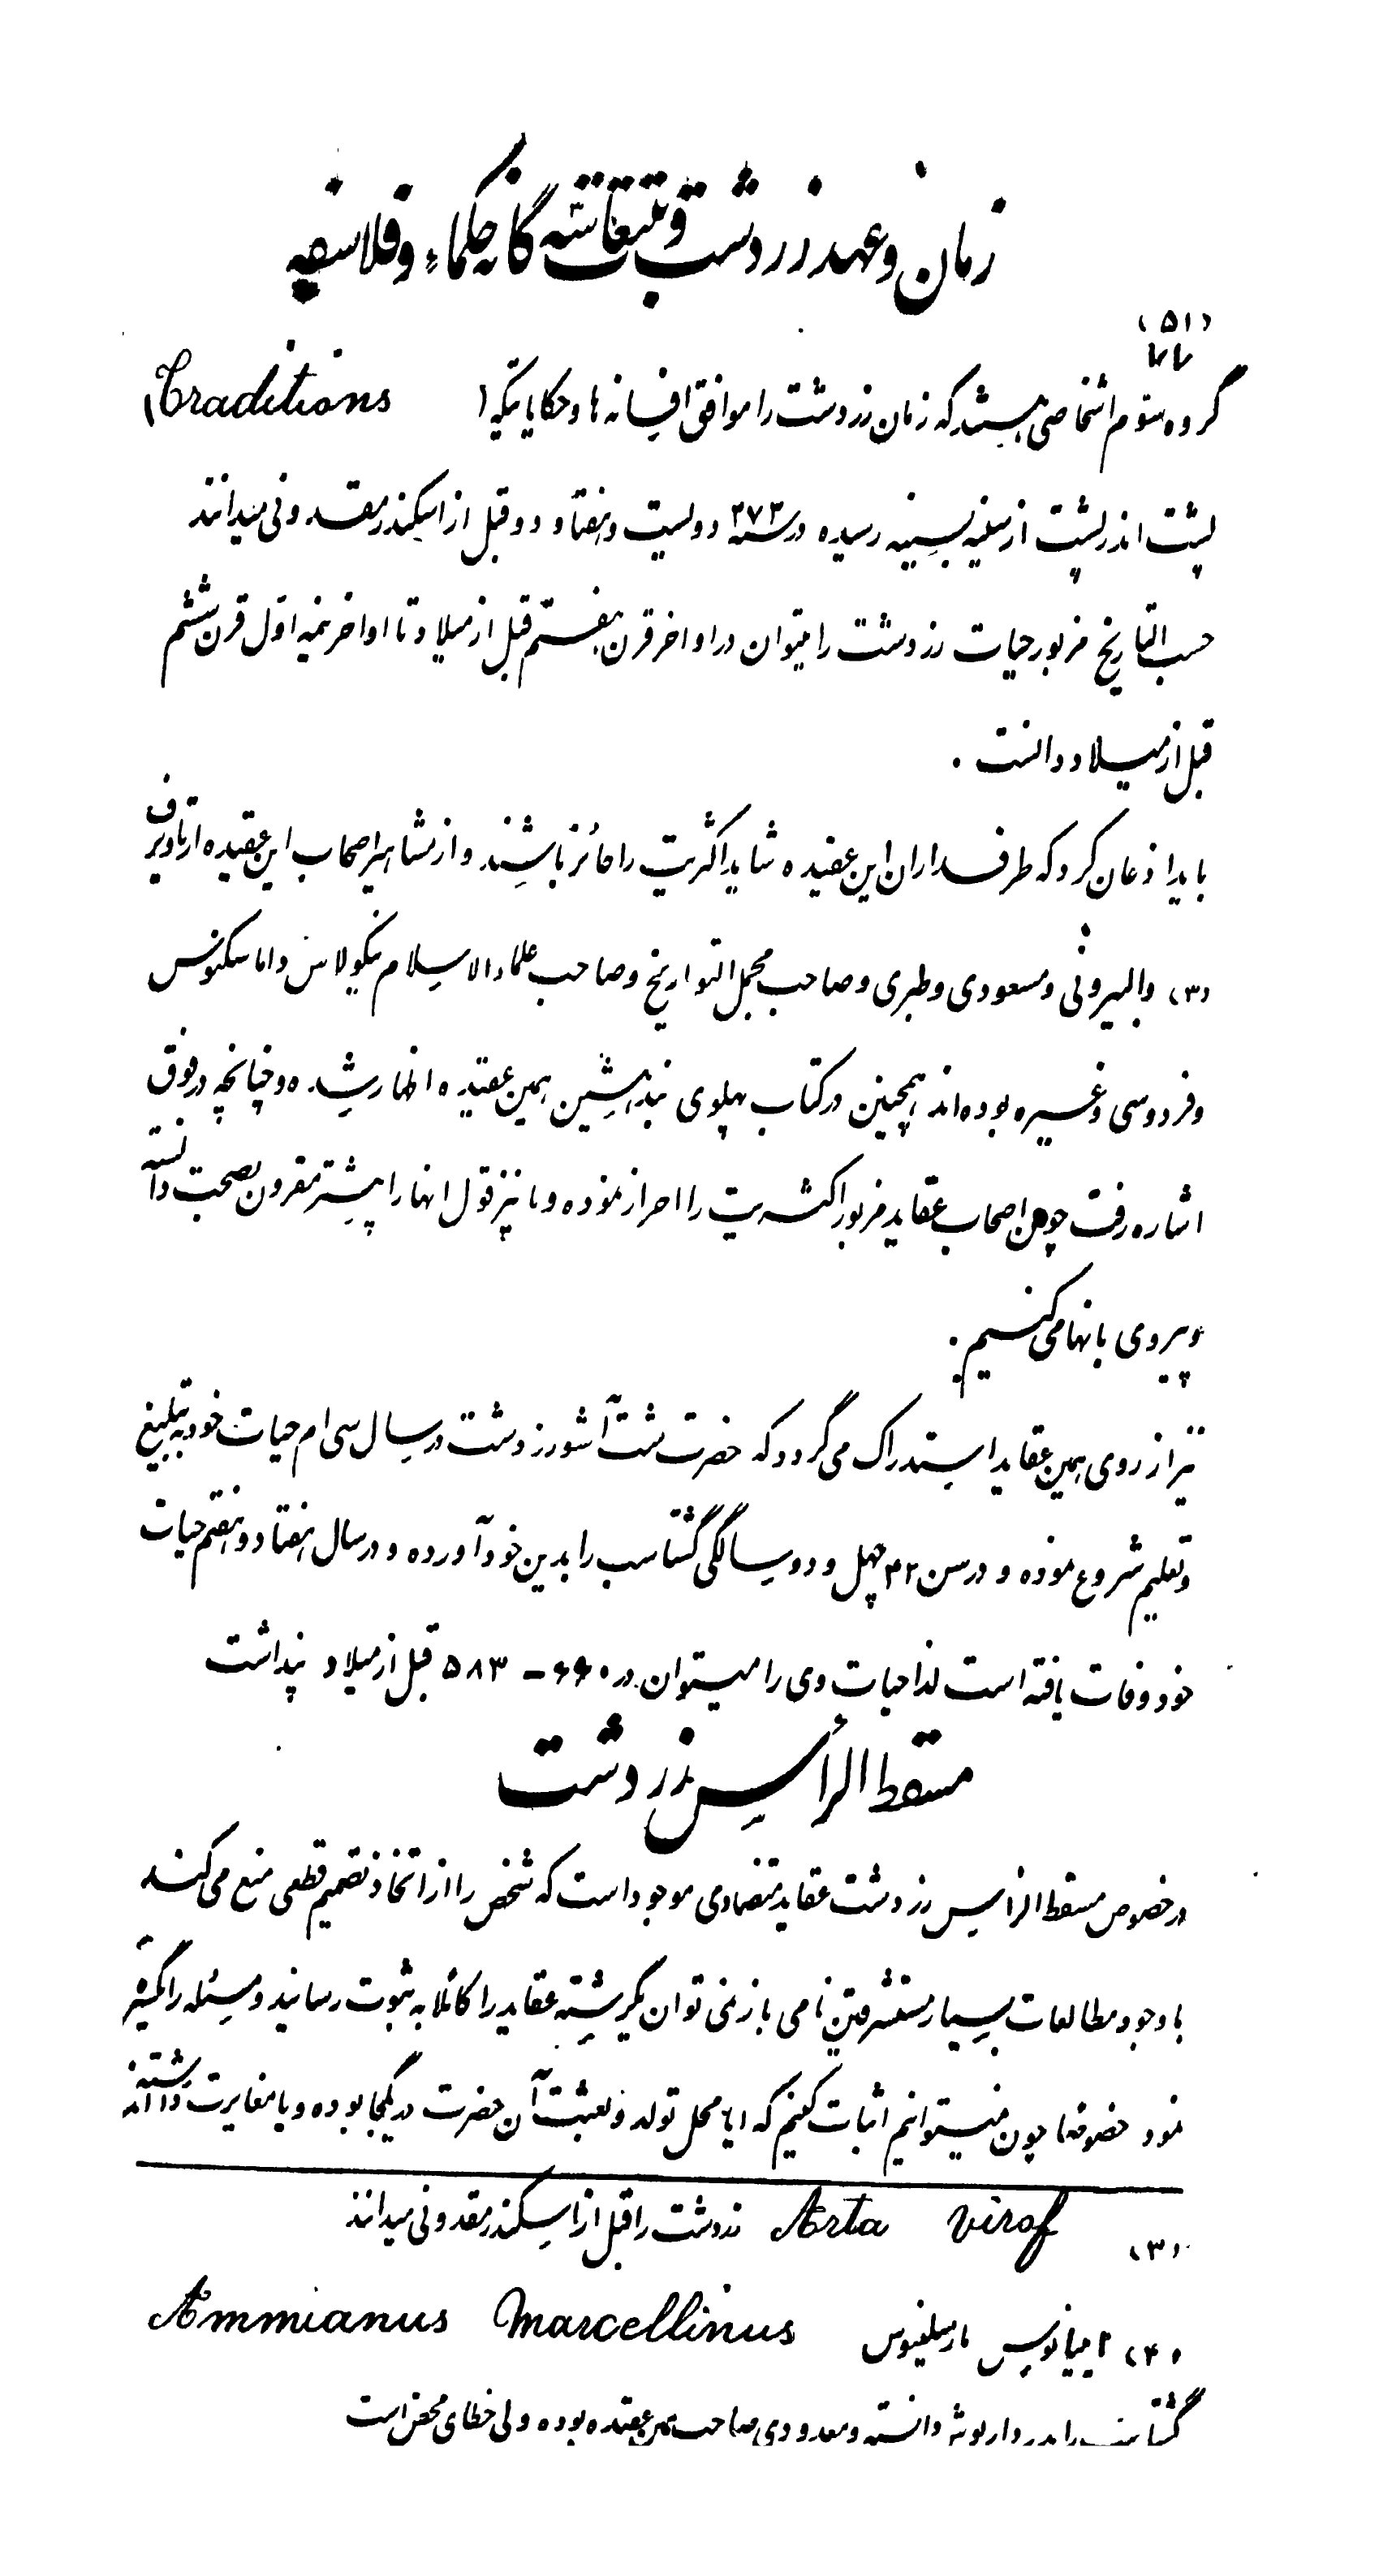 زمان و عهد زردشت و تتبعات سه گانه حکماء و فلاسفه
(۵۱)
گروه سوم اشخاصی هستند که زمان زردشت را موافق افسانه ها و حکایاتیکه (Traditions)
پشت اندر پشت از سینه بسینه رسیده در سنه ۲۷۲ دویست و هفتاد و دو قبل از اسکندر مقدونی میدانند
حسب التاریخ مزبور حیات زردشت را میتوان در اواخر قرن هفتم قبل از میلاد تا اواخر نیمه اول قرن ششم
قبل از میلاد دانست .
باید اذعان کرد که طرفداران این عقیده شاید اکثریت را حائز باشند و از مشاهیر اصحاب این عقیده ارتاویرف
(۳) والبیرونی و مسعودی و طبری و صاحب مجمل التواریخ و صاحب علماء الاسلام نیکولاس داماسکنوس
و فردوسی و غیره بوده اند همچنین در کتاب پهلوی بندهشین همین عقیده اظهار شده و چنانچه در فوق
اشاره رفت چون اصحاب عقاید مزبور اکثریت را احراز نموده و ما نیز قول انها را بیشتر مقرون بصحت دانسته
وپیروی بانها می کنیم .
نیز از روی همین عقاید استدراک می گردد که حضرت شت آشو زردشت در سال سی ام حیات خود به تبلیغ
و تعلیم شروع نموده و در سن ۴۲ چهل و دو سالگی گشتاسب را بدین خود آورده و در سال هفتاد و هفتم حیات
خود وفات یافته است لذا حیات وی را میتوان در ۶۶۰ - ۵۸۳ قبل از میلاد پنداشت
مسقط الرأس زردشت
در خصوص مسقط الرأس زردشت عقاید متضادی موجود است که شخص را از اتخاذ تصمیم قطعی منع می کند
با وجود مطالعات بسیار مستشرقین نامی باز نمی توان یکرشته عقاید را کاملا به ثبوت رسانید و مسئله را یکسره
نمود خصوصا چون نمیتوانیم اثبات کنیم که ایا محل تولد و بعثت آن حضرت در یکجا بوده و یا مغایرت داشته اند
(۳) Arta Viraf زردشت را قبل از اسکندر مقدونی میدانند
(۴) امیانوس مارسلینوس Ammianus Marcellinus
گشتاسب را پدر داریوش دانسته و معدودی صاحب همین عقیده بوده ولی خطای محض است